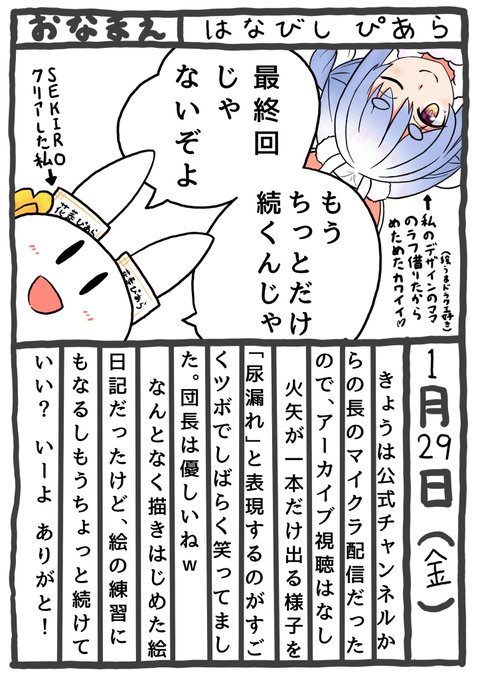 おなまえ
はなびし ぴあら
最終回
じゃ
ないぞよ
もう
ちっとだけ
続くんじゃ
↑私のデザインのママ
(絵うまドラクエ好き)
のラフ借りたから
めためたカワイイ♡
SEKIRO
クリアした私→
花菱ぴあら
花菱ぴあら
1月29日(金)
きょうは公式チャンネルか
らの長のマイクラ配信だった
ので、アーカイブ視聴はなし
火矢が一本だけ出る様子を
「尿漏れ」と表現するのがすご
くツボでしばらく笑ってまし
た。団長は優しいねw
なんとなく描きはじめた絵
日記だったけど、絵の練習に
もなるしもうちょっと続けて
いい? いーよ ありがと!